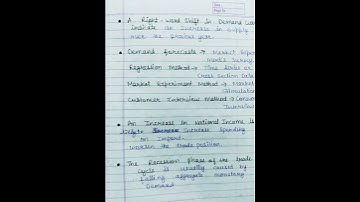 A Right-word Shift in Demand Curve
indicate an Increase in supply
over the
Demand forecasts → Market Exper
Regression Method → Time Series or
Cross Section Data
Market Experiment Method → Market
Stimulation
Customer Interview Method → Consum
An Increase in national Income is
likely to Increase Spending
on Import.
worsen the trade position.
The Recession phase of the trade
cycle is usually caused by
falling aggregate monetary
Demand